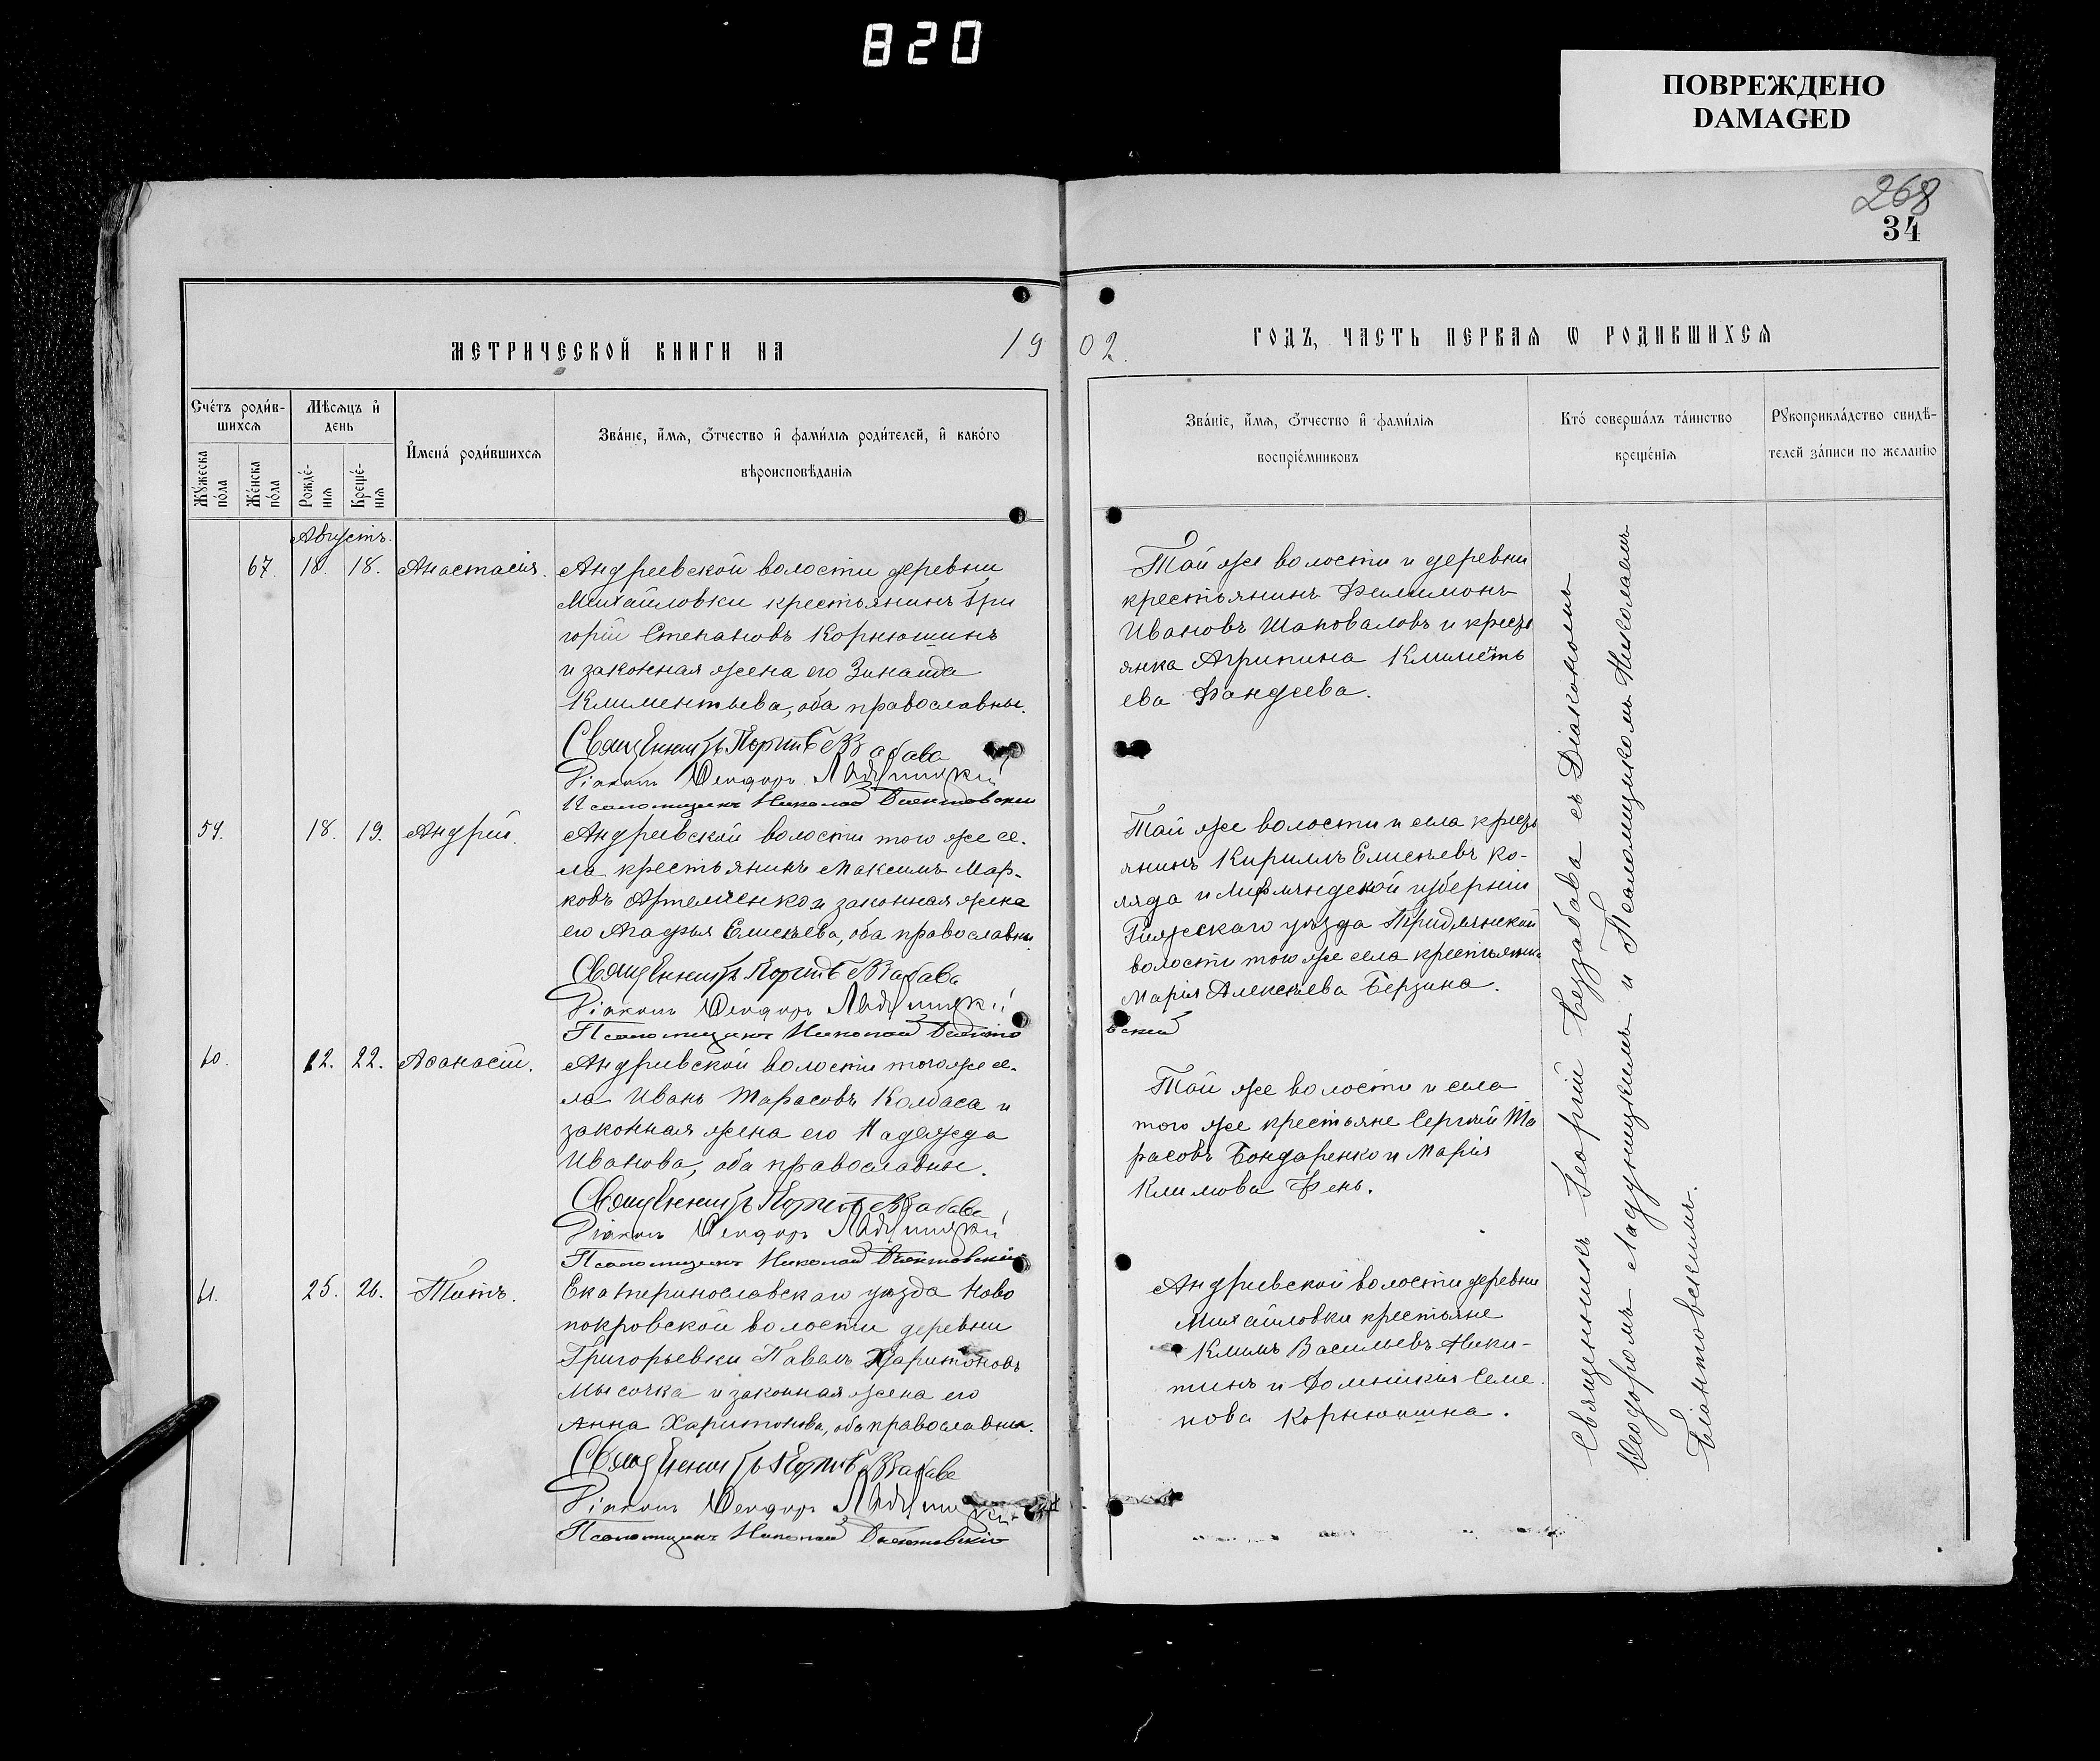 820
ПОВРЕЖДЕНО
DAMAGED
268
34
МЕТРИЧЕСКОЙ КНИГИ НА
19 02.
ГОДЪ, ЧАСТЬ ПЕРВАЯ Ѡ РОДИВШИХСЯ
Счетъ родив-
шихся
Мѣсяцъ и
день
Мужеска
пола
Женска
пола
Рожде-
нія
Креще-
нія
Имена родившихся
Званіе, имя, отчество и фамилія родителей, и какого
вѣроисповѣданія
Званіе, имя, отчество и фамилія
воспріемниковъ
Кто совершалъ таинство
крещенія
Рукоприкладство свидѣ-
телей записи по желанію
Августъ.
67. 18. 18. Анастасія.
Андреевской волости деревни
Михайловки крестьянинъ Гри
горій Степановъ Корнюшинъ
и законная жена его Зинаида
Климентьева, оба православные.
Священникъ Георгій Беззабава
Діаконъ Ѳеодоръ Ладухинскій
Псаломщикъ Николай
Той же волости и деревни
крестьянинъ Филимонъ
Ивановъ Шаповаловъ и крест
янка Агрипина Климёть
ева Фандеева.
59. 18. 19. Андрей.
Андреевской волости того же се-
ла крестьянинъ Максимъ Мар-
ковъ Артеменко и законная жена
его Агафья Елисѣева, оба православны.
Священникъ Георгій Беззабава
Діаконъ Ѳеодоръ
Псаломщикъ Николай
вскій
Той же волости и села крест
янинъ Кириллъ Елисѣевъ Ко-
ляда и Лифляндской губерніи
Рижскаго уѣзда
волости того же села крестьянка
Марія Алексѣева Берзина.
60. 22. 22. Аѳанасій.
Андреевской волости того же се-
ла Иванъ Тарасовъ Колбаса и
законная жена его Надежда
Иванова, оба православные.
Священникъ Георгій Беззабава
Діаконъ Ѳеодоръ
Псаломщикъ Николай
Той же волости и села
того же крестьяне Сергѣй Та
расовъ Бондаренко и Марія
Климова Фень.
61. 25. 26. Титъ.
Екатеринославскаго уѣзда Ново
покровской волости деревни
Григорьевки Павелъ Харитоновъ
Мысочка и законная жена его
Анна Харитонова, оба православны.
Священникъ Георгій Беззабава
Діаконъ Ѳеодоръ
Псаломщикъ Николай
Андреевской волости деревни
Михайловки крестьяне
Климъ Васильевъ Ники-
тинъ и Домникія Семе
нова Корнюшина.
Священникъ Георгій Беззабава съ Діакономъ
Ѳеодоромъ и Псаломщикомъ Николаемъ